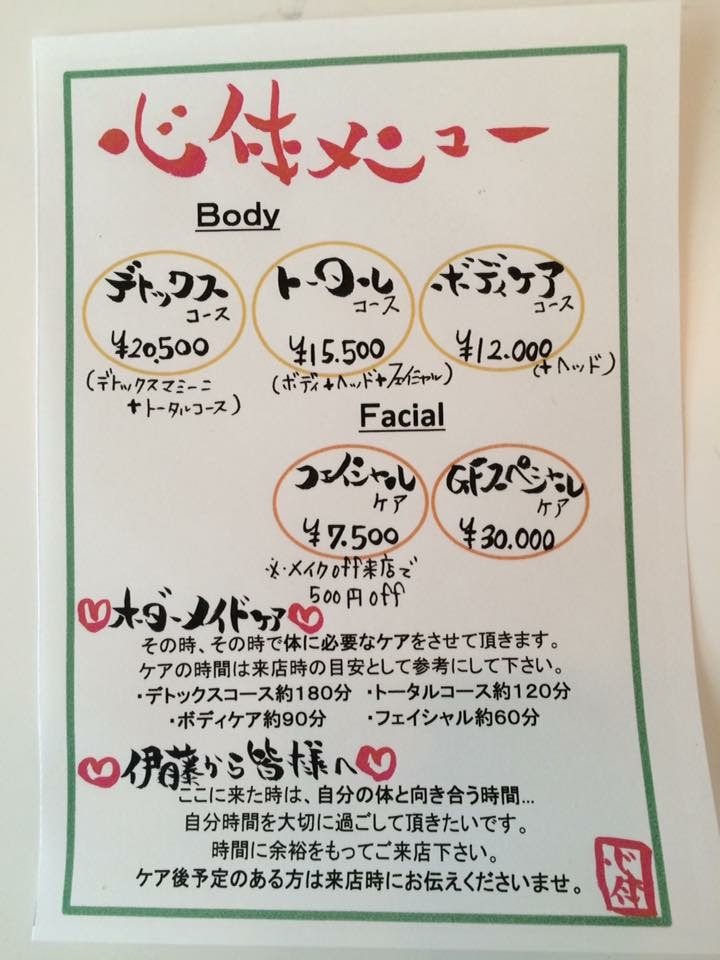 心体メニュー
Body
デトックス
コース
¥20,500
(デトックスマミーニ
+トータルコース)
トータル
コース
¥15.500
(ボディ+ヘッド+フェイシャル)
ボディケア
コース
¥12.000
(+ヘッド)
Facial
フェイシャル
ケア
¥7.500
※メイクoff来店で
500円off
GFスペシャル
ケア
¥30.000
オーダーメイドケア
その時、その時で体に必要なケアをさせて頂きます。
ケアの時間は来店時の目安として参考にして下さい。
・デトックスコース約180分 ・トータルコース約120分
・ボディケア約90分 ・フェイシャル約60分
伊藤から皆様へ
ここに来た時は、自分の体と向き合う時間...
自分時間を大切に過ごして頂きたいです。
時間に余裕をもってご来店下さい。
ケア後予定のある方は来店時にお伝えくださいませ。
心体